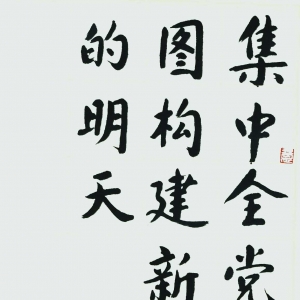 集中全党
图构建新
的明天